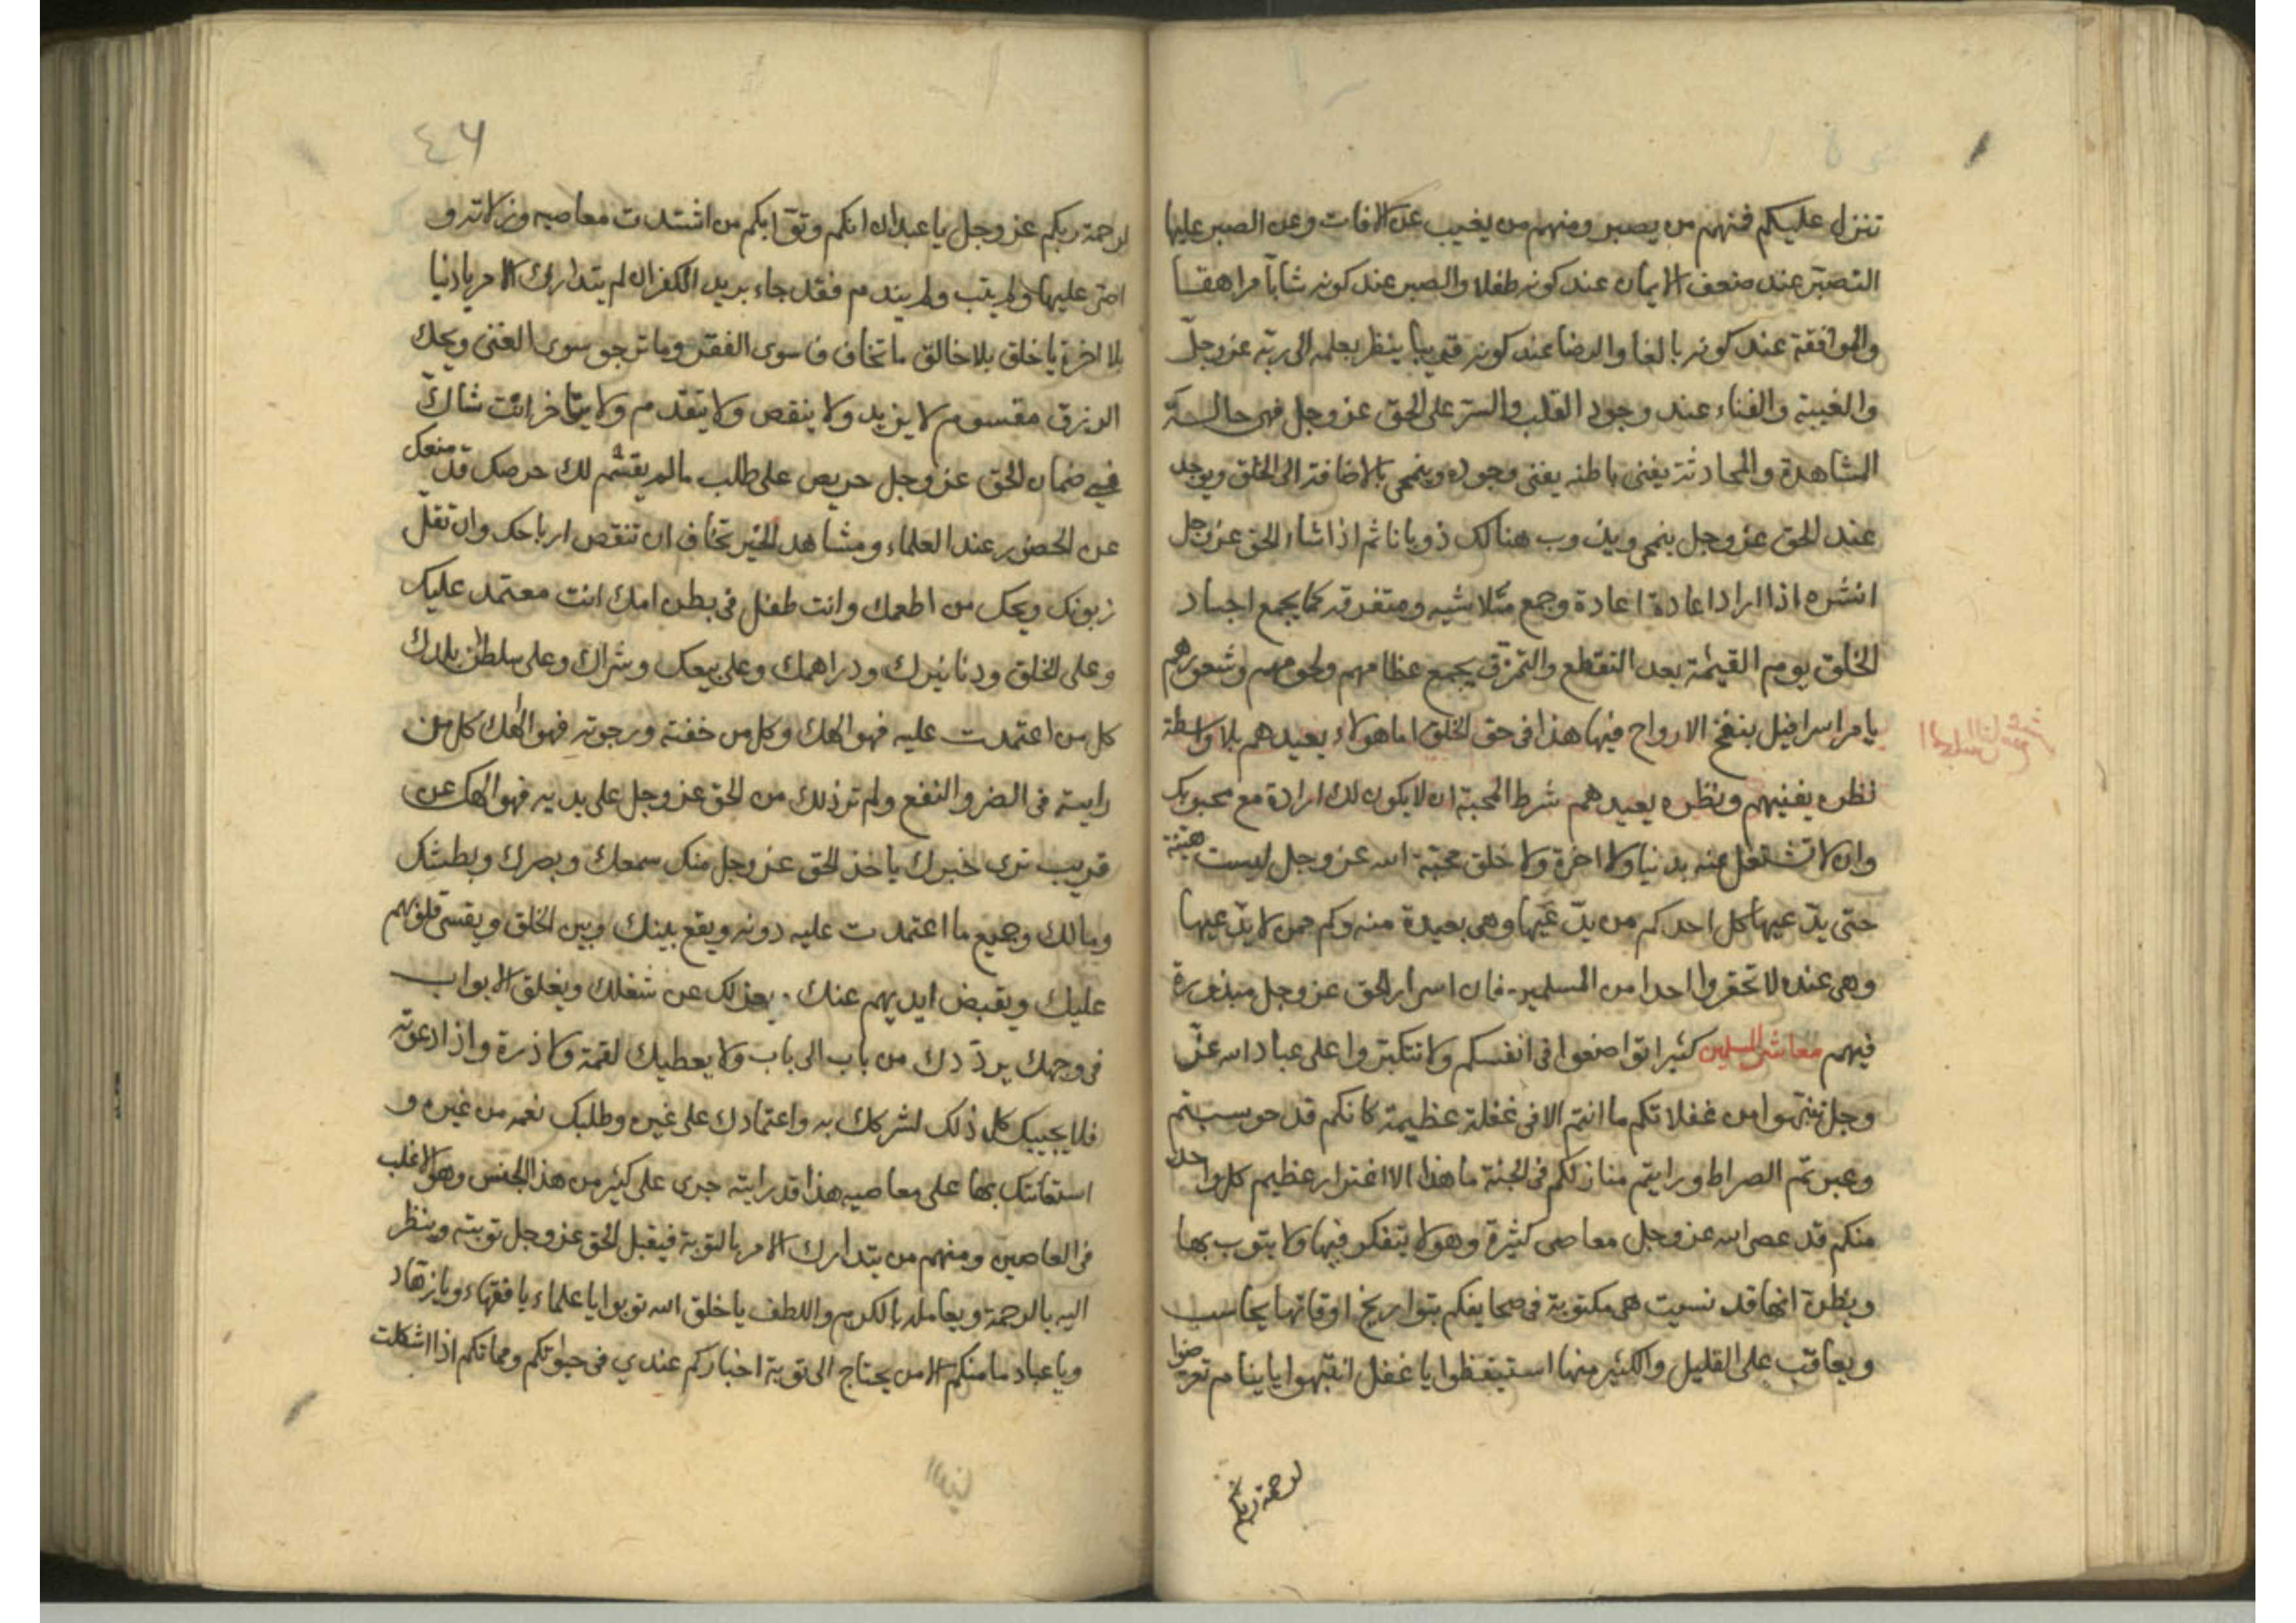 تنزل عليكم فمنهم من يصبر ومنهم من يغيب عن الافات وعن الصبر عليها
التصبر عند ضعف الايمان عند كونه طفلا والصبر عند كونه شابا مراهقا
والموافقة عند كونه بالغا والرضا عند كونه قريبا ينظر بعلمه الى ربه عز وجل
والغيبة والفناء عند وجود القلب والسر على الحق عز وجل فهي حالة
المشاهدة والمحادثة يفنى باطنه يفنى وجوده وينمحى بالاضافة الى الخلق ويوجد
عند الحق عز وجل ينمحى ويذوب هنالك ذوبانا ثم اذا شاء الحق عز وجل
انشره اذا اراد اعادة اعادة وجمع متلاشيه ومتفرقه كما يجمع اجساد
الخلق يوم القيمة بعد التقطع والتمزق يجمع عظامهم ولحومهم وشعورهم
يامر اسرافيل بنفخ الارواح فيها هذا فى حق الخلق اما هولاء يعيدهم بلا واسطة
نظره يفنيهم ونظره يعيدهم شرط المحبة ان لا يكون لك ارادة مع محبوبك
وان لا تشتغل عنه بدنيا ولا اخرة ولا خلق محبة الله عز وجل ليست هينة
حتى يدعيها كل احد كم من يدعيها وهى بعيدة منه وكم ممن لا يدعيها
وهى عنده لا تحقروا احدا من المسلمين فان اسرار الحق عز وجل مبذورة
فيهم معاشر المسلمين كثيرا تواضعوا فى انفسكم ولا تتكبروا على عباد الله عز
وجل تنبهوا من غفلاتكم ما انتم الا فى غفلة عظيمة كانكم قد حوسبتم
وعبرتم الصراط ورايتم منازلكم فى الجنة ما هذا الا اغترار عظيم كل واحد
منكم قد عصى الله عز وجل معاصى كثيرة وهو لا يتفكر فيها ولا يتوب بها
ويظن انها قد نسيت هى مكتوبة فى صحايفكم بتواريخ اوقاتها يحاسب
ويعاقب على القليل والكثير منها استيقظوا يا غفل انتبهوا يا نيام تعرضوا
لرحمة ربكم
٤٦
لرحمة ربكم عز وجل يا عبدان انكم وتوابكم من اشتدت معاصيه وزلاته و
اصر عليها ولم يتب ولم يندم فقد جاء بريد الكفر ان لم يتدارك الامر يا دنيا
بلا اخرة يا خلق بلا خالق ما تخاف سوى الفقر وما ترجو سوى الغنى ويحك
الرزق مقسوم لا يزيد ولا ينقص ولا يتقدم ولا يتاخر انت شاك
فى ضمان الحق عز وجل حريص على طلب ما لم يقسم لك حرصك قد منعك
عن الحضور عند العلماء ومشاهد الخير تخاف ان تنقص ارباحك وان تقل
زبونك ويحك من اطعمك وانت طفل فى بطن امك انت معتمد عليك
وعلى الخلق ودنانيرك ودراهمك وعلى بيعك وشراك وعلى سلطان بلدك
كل من اعتمدت عليه فهو الهك وكل من خفته ورجوته فهو الهك كل من
رايته فى الضر والنفع ولم تر ذلك من الحق عز وجل على يديه فهو الهك عن
قريب ترى خبرك ياخذ الحق عز وجل منك سمعك وبصرك وبطشك
ومالك وجميع ما اعتمدت عليه دونه ويقع بينك وبين الخلق ويقسى قلوبهم
عليك ويقبض ايديهم عنك يعزلك عن شغلك ويغلق الابواب
فى وجهك يرددك من باب الى باب ولا يعطيك لقمة ولا ذرة واذا دعوته
فلا يجيبك كل ذلك لشركك به واعتمادك على غيره وطلبك نعمه من غيره و
استعانتك بها على معاصيه هذا قد رايته جرى على كثير من هذا الجنس وهو الاغلب
فى العاصين ومنهم من يتدارك الامر بالتوبة فيقبل الحق عز وجل توبته وينظر
اليه بالرحمة ويعامله بالكرم واللطف يا خلق الله توبوا يا علماء يا فقهاء ويا زهاد
ويا عباد ما منكم الا من يحتاج الى توبة اخباركم عندي فى حيوتكم ومماتكم اذا اشكلت